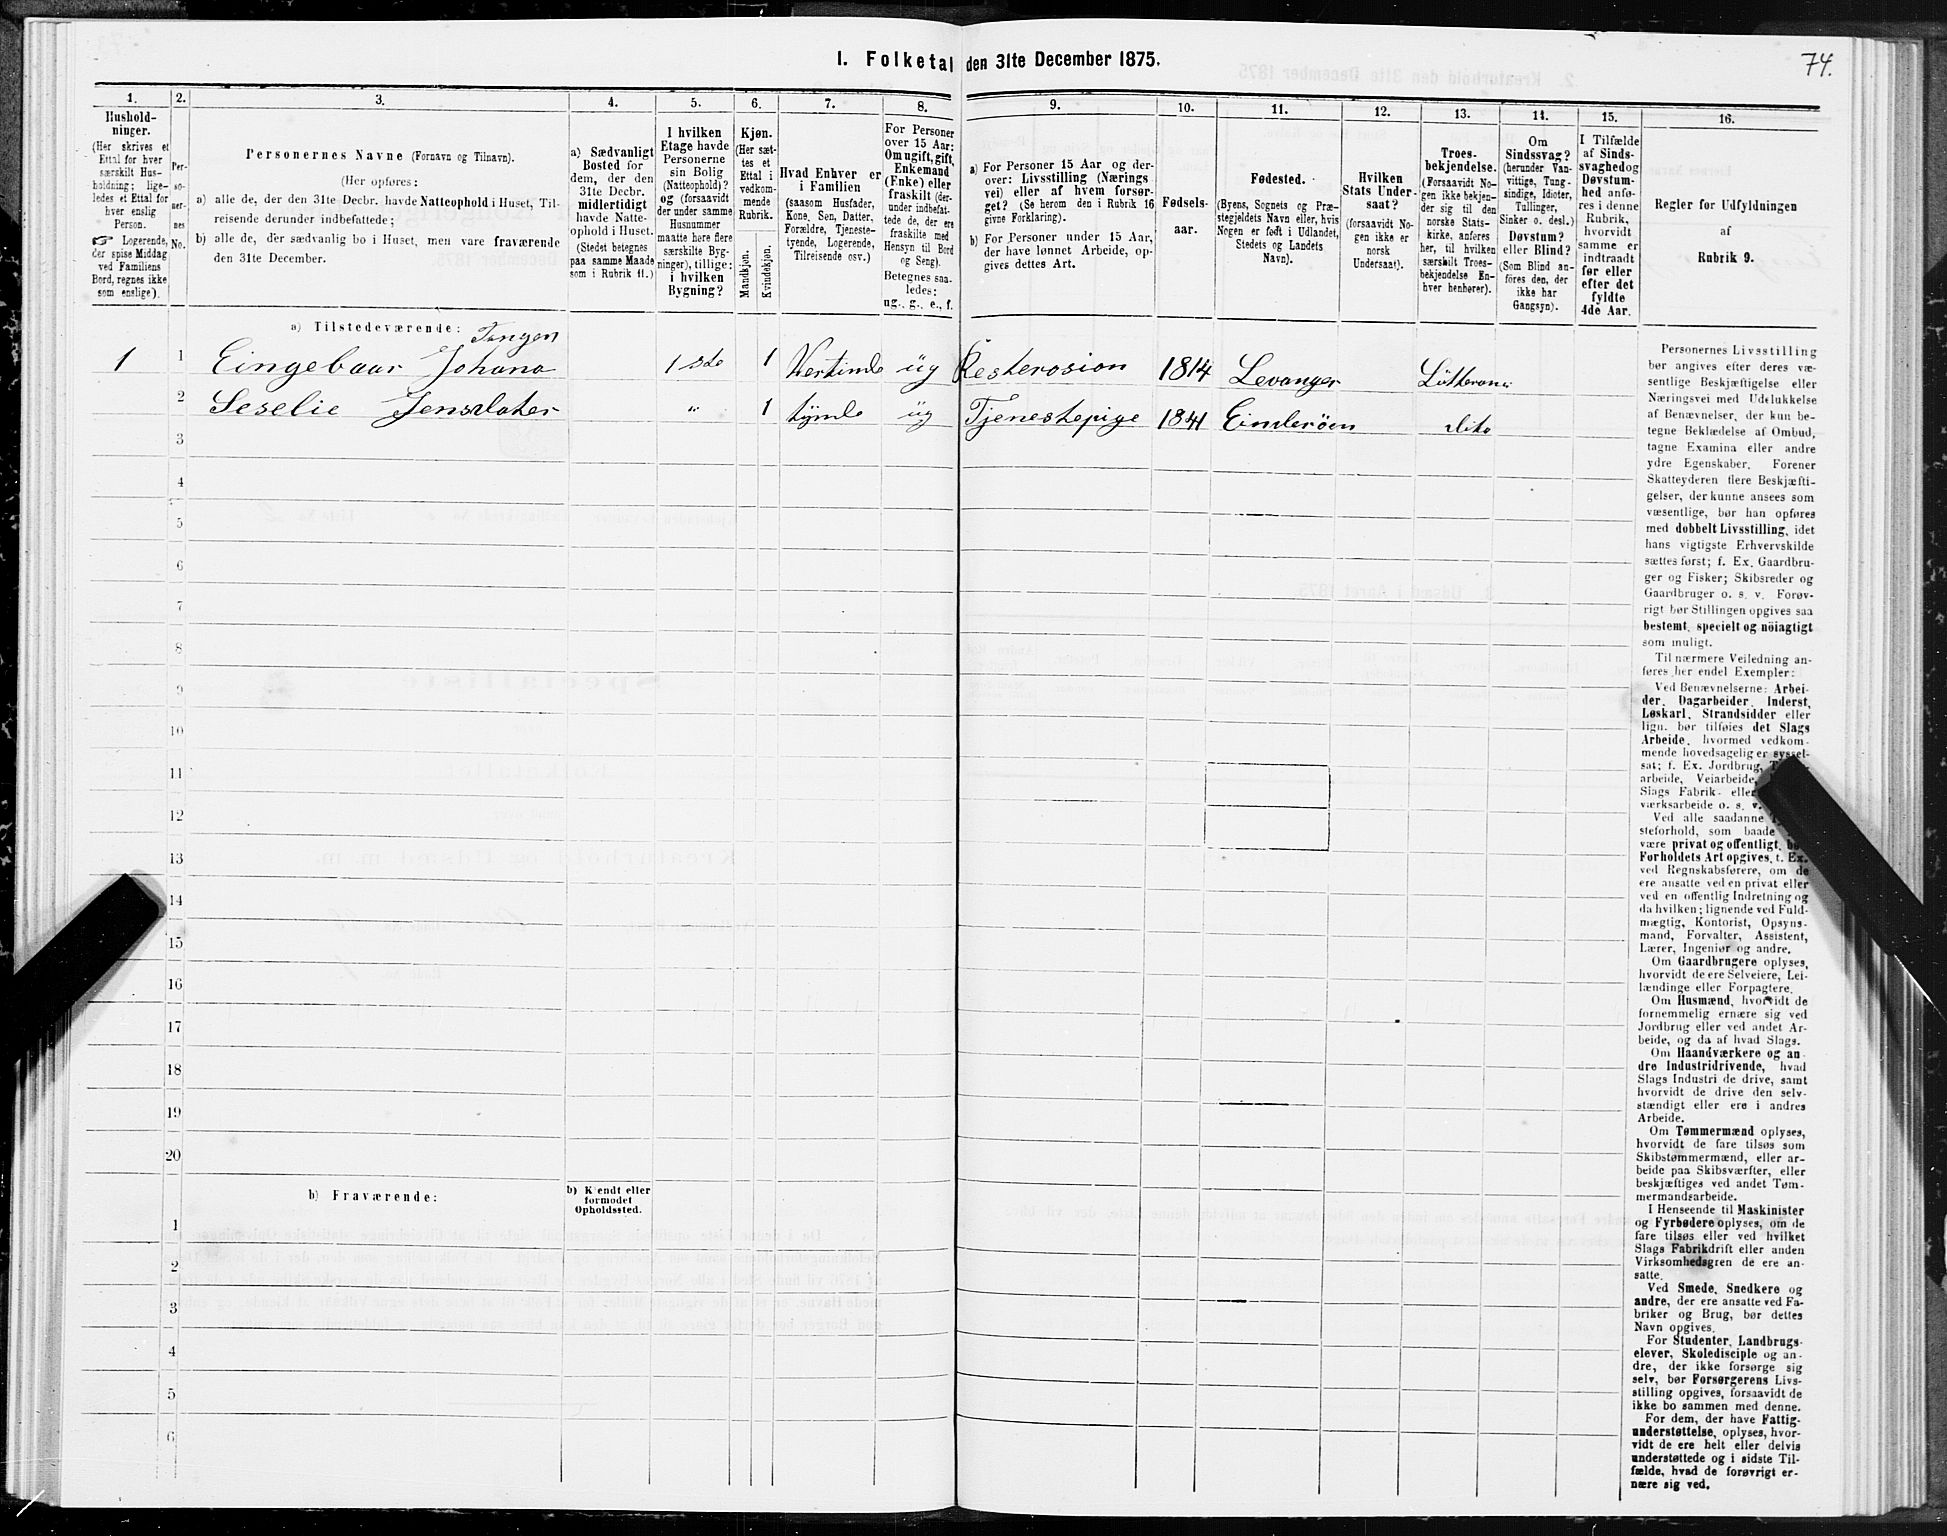 74.
I. Folketal den 31te December 1875.
1. 2. 3. 4. 5. 6. 7. 8. 9. 10. 11. 12. 13. 14. 15. 16.
Hushold-
ninger.
(Her skrives et
Ettal for hver
særskilt Hus-
holdning; lige-
ledes et Ettal for
hver enslig
Person.
☞ Logerende,
der spise Middag
ved Familiens
Bord, regnes ikke
som enslige).
Per-
so-
ner-
nes
No.
Personernes Navne (Fornavn og Tilnavn).
(Her opføres:
a) alle de, der den 31te Decbr. havde Natteophold i Huset, Til-
reisende derunder indbefattede;
b) alle de, der sædvanlig bo i Huset, men vare fraværende
den 31te December.
a) Sædvanligt
Bosted for
dem, der den
31te Decbr.
midlertidigt
havde Natte-
ophold i Huset.
(Stedet betegnes
paa samme Maade
som i Rubrik 11.)
I hvilken
Etage havde
Personerne
sin Bolig
(Natteophold)?
og (forsaavidt
der under samme
Husnummer
maatte høre flere
særskilte Byg-
ninger), tillige:
i hvilken
Bygning?
Kjøn.
(Her sæt-
tes et
Ettal i
vedkom-
mende
Rubrik.
Mandkjøn.
Kvindekjøn.
Hvad Enhver er
i Familien
(saasom Husfader,
Kone, Søn, Datter,
Forældre, Tjeneste-
tyende, Logerende,
Tilreisende osv.)
For Personer
over 15 Aar:
Om ugift, gift,
Enkemand
(Enke) eller
fraskilt (der-
under indbefat-
tede de, der ere
fraskilte med
Hensyn til Bord
og Seng).
Betegnes saa-
ledes:
ug., g., e., f.
a) For Personer 15 Aar og der-
over: Livsstilling (Nærings
vei) eller af hvem forsør-
get? (Se herom den i Rubrik 16
givne Forklaring).
b) For Personer under 15 Aar,
der have lønnet Arbeide, op-
gives dettes Art.
Fødsels-
aar.
Fødested.
(Byens, Sognets og Præ-
stegjeldets Navn eller, hvis
Nogen er født i Udlandet,
Stedets og Landets
Navn).
Hvilken
Stats Under-
saat?
(forsaavidt No-
gen ikke er
norsk
Undersaat).
Troes-
bekjendelse.
(Forsaavidt No-
gen ikke bekjen-
der sig til den
norske Stats-
kirke, anføres
her, til hvilken
særskilt Troes-
bekjendelse En-
hver henhører).
Om
Sindssvag?
(herunder Van-
vittige, Tung-
sindige, Idioter,
Tullinger,
Sinker o. desl.)
Døvstum?
eller Blind?
(Som Blind an-
føres den, der
ikke har
Gangsyn).
I Tilfælde
af Sinds-
svaghed og
Døvstum-
hed anfø-
res i denne
Rubrik,
hvorvidt
samme er
indtraadt
før eller
efter det
fyldte
4de Aar.
Regler for Udfyldningen
af
Rubrik 9.
a) Tilstedeværende: Tangen
1 1 Eingebaar Johana 1 ste 1 Vertinde üg 1814 Levanger
2 Seselie Jensdater „ 1 tynde üg Tjenestepige 1841 Einderöen dito
3
4
5
6
7
8
9
10
11
12
13
14
15
16
17
18
19
20
b) Fraværende:
b) Kjendt eller
formodet
Opholdssted.
1
2
3
4
5
6
Personernes Livsstilling
bør angives efter deres væ-
sentlige Beskjæftigelse eller
Næringsvei med Udelukkelse
af Benævnelser, der kun be-
tegne Beklædelse af Ombud,
tagne Examina eller andre
ydre Egenskaber. Forener
Skatteyderen flere Beskjæfti-
gelser, der kunne ansees som
væsentlige, bør han opføres
med dobbelt Livsstilling, idet
hans vigtigste Erhvervskilde
sættes først; f. Ex. Gaardbru-
ger og Fisker; Skibsreder og
Gaardbruger o. s. v. Forøv-
rigt bør Stillingen opgives saa
bestemt, specielt og nöiagtigt
som muligt.
Til nærmere Veiledning an-
føres her endel Exempler:
Ved Benævnelserne: Arbei-
der, Dagarbeider, Inderst,
Løskarl, Strandsidder eller
lign. bør tilføies det Slags
Arbeide, hvormed vedkom-
mende hovedsagelig er syssel-
sat; f. Ex. Jordbrug,
arbeide, Veiarbeide,
Slags Fabrik- eller
værksarbeide o. s. v.
Ved alle saadanne
steforhold, som baade
være privat og offentligt, bør
Forholdets Art opgives, t. Ex.
ved Regnskabsførere, om de
ere ansatte ved en privat eller
ved en offentlig Indretning og
da hvilken; lignende ved Fuld-
mægtig, Kontorist, Opsyns-
mand, Forvalter, Assistent,
Lærer, Ingeniør og andre.
Om Gaardbrugere oplyses,
hvorvidt de ere Selveiere, Lei-
lændinge eller Forpagtere.
Om Husmænd, hvorvidt de
fornemmelig ernære sig ved
Jordbrug eller ved andet Ar-
beide, og da af hvad Slags.
Om Haandværkere og an-
dre Industridrivende, hvad
Slags Industri de drive, samt
hvorvidt de drive den selv-
stændigt eller ere i andres
Arbeide.
Om Tømmermænd oplyses,
hvorvidt de fare tilsøs som
Skibstømmermænd, eller ar-
beide paa Skibsværfter, eller
beskjæftiges ved andet Tøm-
mermandsarbeide.
I Henseende til Maskinister
og Fyrbødere oplyses, om de
fare tilsøs eller ved hvilket
Slags Fabrikdrift eller anden
Virksomhedsgren de ere an-
satte.
Ved Smede, Snedkere og
andre, der ere ansatte ved Fa-
briker og Brug, bør dettes
Navn opgives.
For Studenter, Landbrugs-
elever, Skoledisciple og an-
dre, der ikke forsørge sig
selv, bør Forsørgerens Livs-
stilling opgives, forsaavidt de
ikke bo sammen med denne.
For dem, der have Fattig-
understøttelse, oplyses, hvor-
vidt de ere helt eller delvis
understøttede og i sidste Til-
fælde, hvad de forøvrigt er-
nære sig ved.